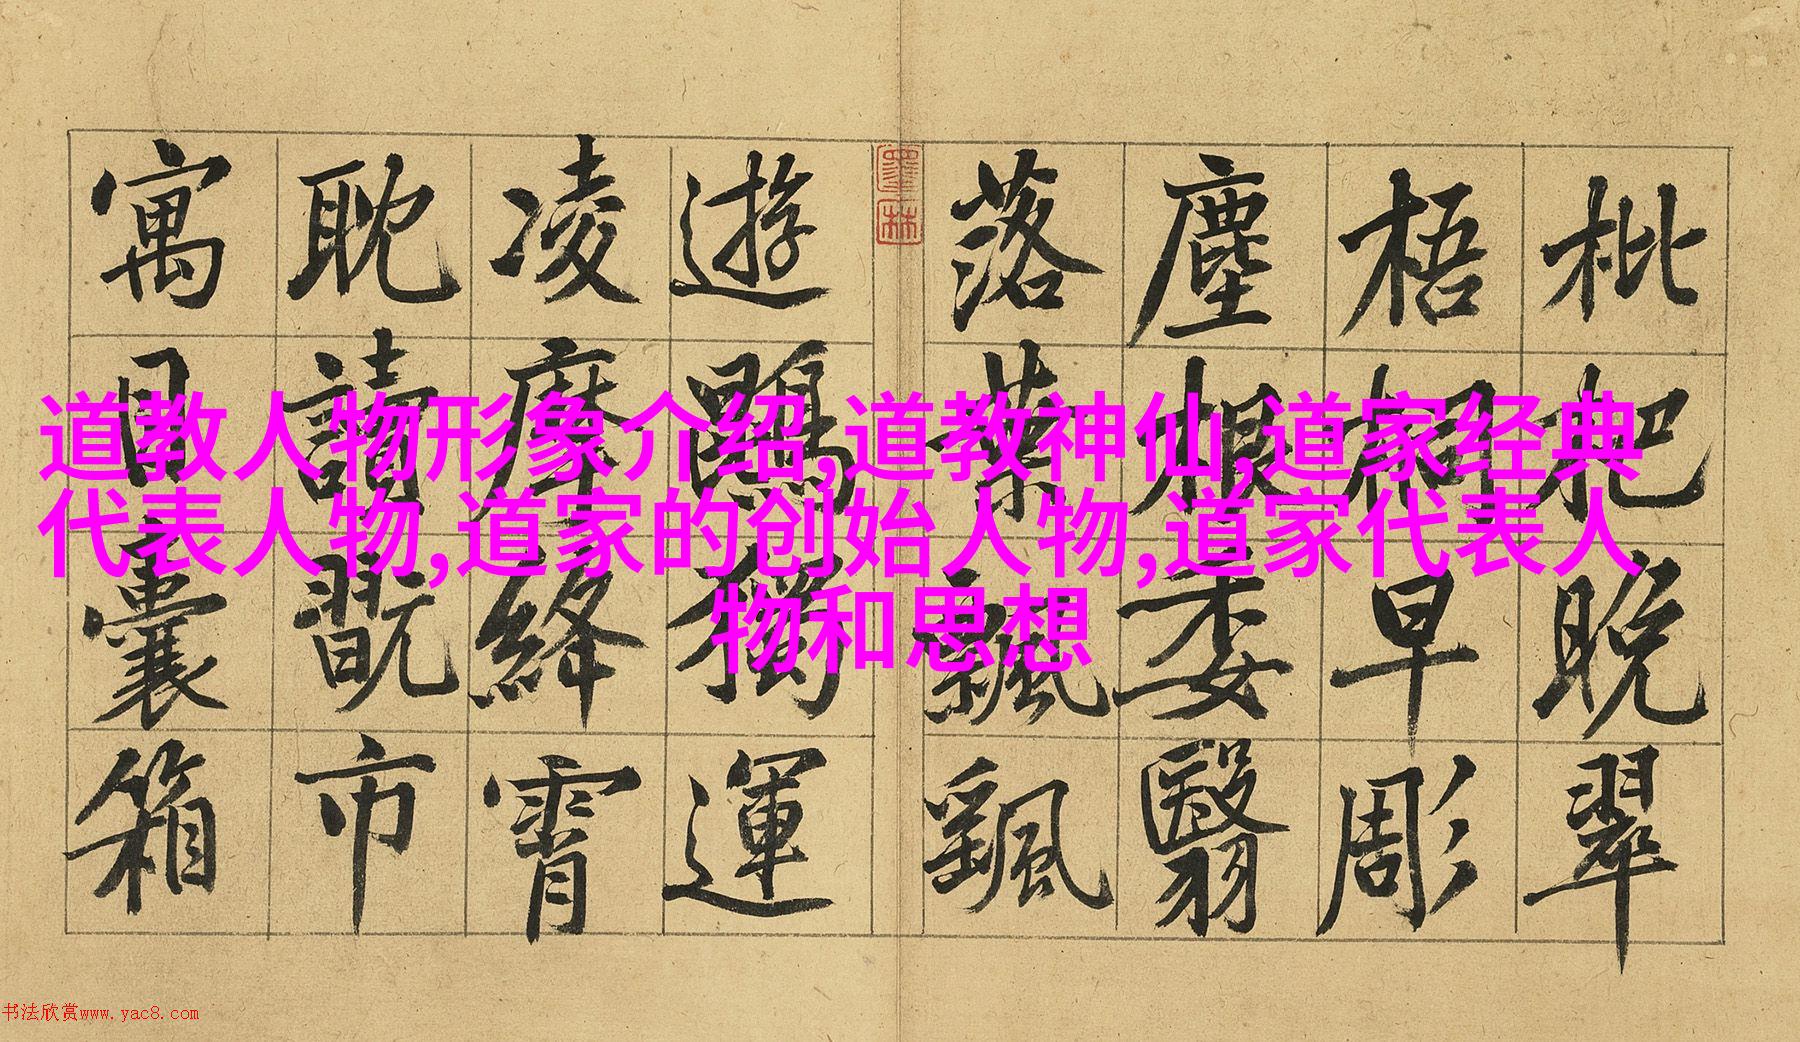 枇杷晚翠
梧桐早彫
塵根委翳
落葉飄颻
遊鵾獨運
凌摩絳霄
耽讀翫市
寓目囊箱
墨林
道教人物形象介绍,道教神仙,道家经典
代表人物,道家的创始人物,道家代表人
物和思想
书法欣赏www.yac8.com